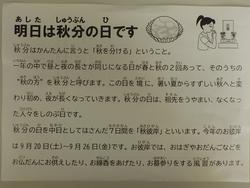 明日は秋分の日です
秋分はかんたんに言うと「秋を分ける」ということ。
一年の中で昼と夜の長さが同じになる日が春と秋の2回あって、そのうちの
"秋の方"を秋分と呼びます。この日を境に、暑い夏からすずしい秋へと変
わり初め、夜が長くなっていきます。秋分の日は、祖先をうやまい、なくなっ
た人々をしのぶ日です。
秋分の日を中日としてはさんだ7日間を「秋彼岸」といいます。今年のお彼岸
は9月20日(土)~9月26日(金)です。お彼岸では、おはぎやおだんごなどを
お仏だんにお供えしたり、お線香をあげたり、お墓参りをする風習があります。